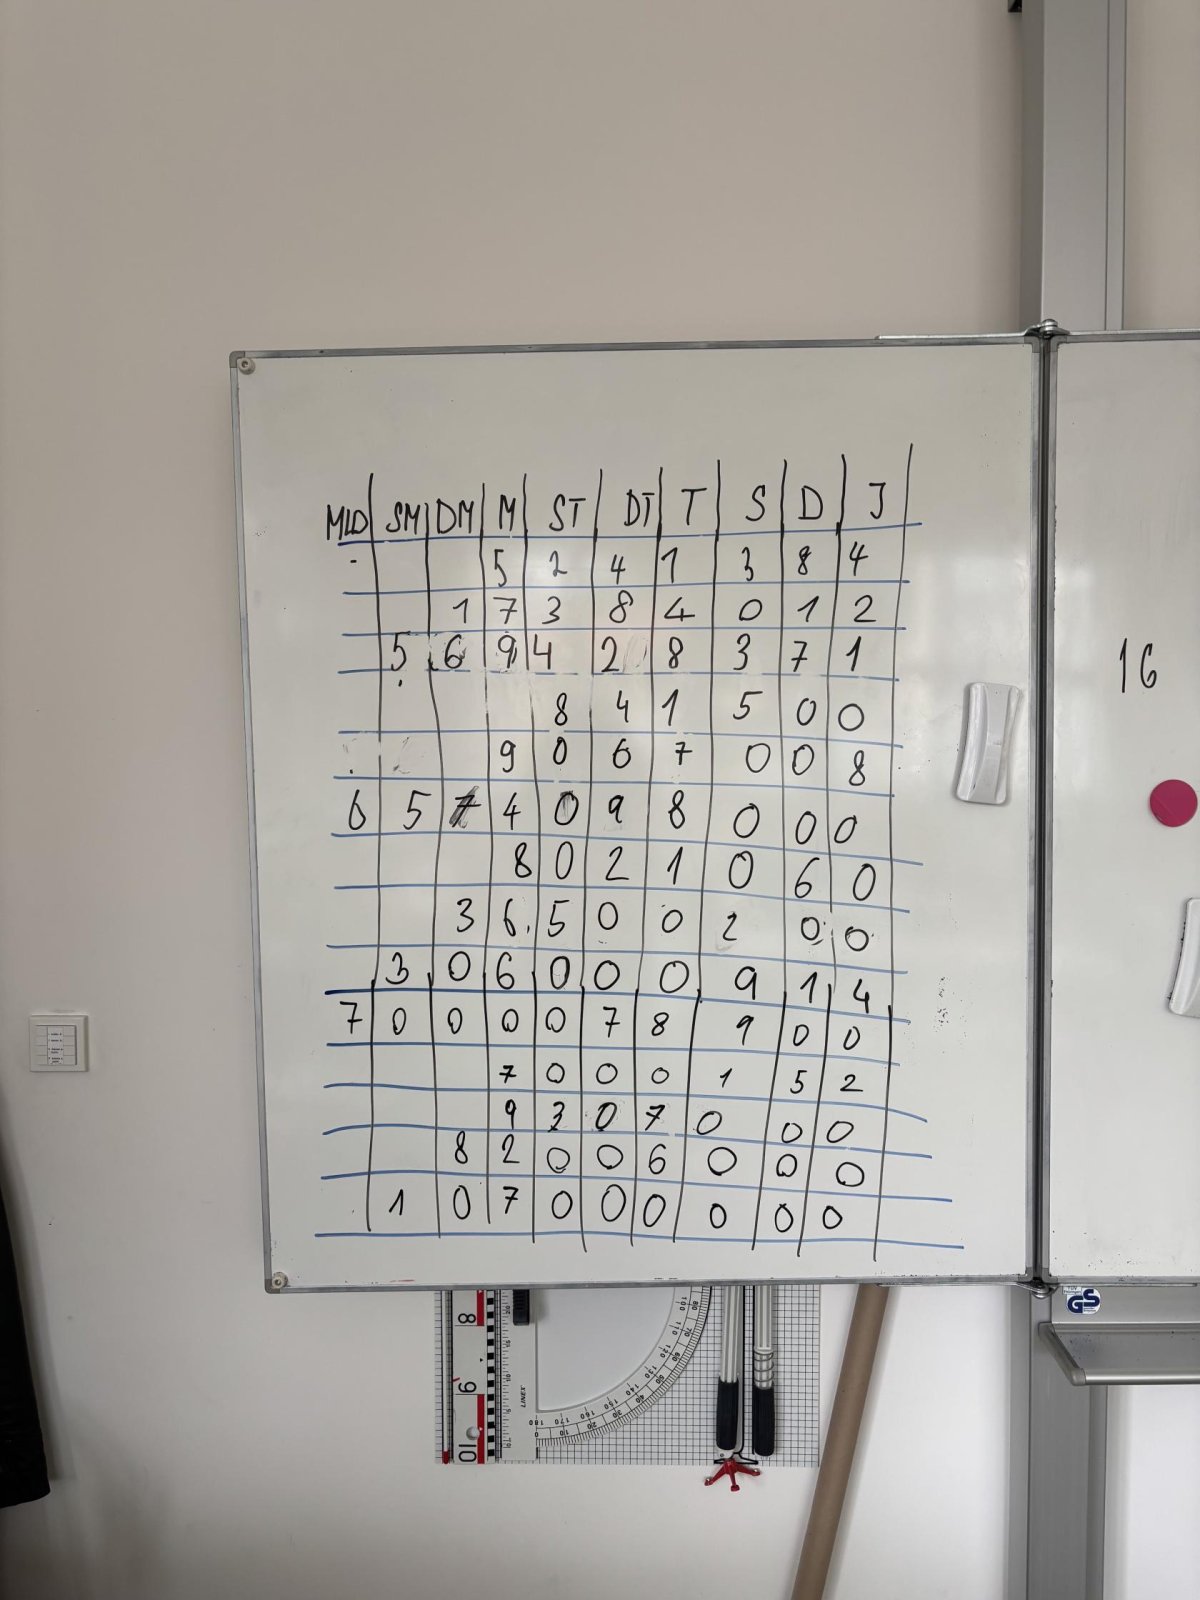 MLD SM DM M ST DT T S D J
5 2 4 1 3 8 4
1 7 3 8 4 0 1 2
5 6 9 4 2 8 3 7 1
16
8 4 1 5 0 0
9 0 6 7 0 0 8
6 5 7 4 0 9 8 0 0 0
8 0 2 1 0 6 0
3 6 5 0 0 2 0 0
3 0 6 0 0 0 9 1 4
7 0 0 0 0 7 8 9 0 0
7 0 0 0 1 5 2
9 3 0 7 0 0 0
8 2 0 0 6 0 0 0
1 0 7 0 0 0 0 0 0
GS
8
9
10
LINEX